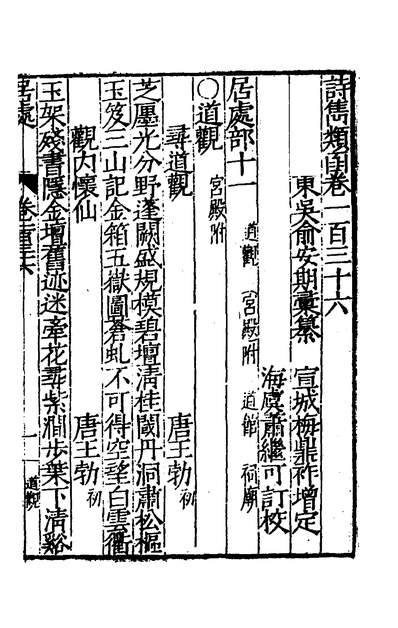 詩雋類函卷一百三十六
東吳俞安期彙纂 宣城梅鼎祚增定
海虞蕭繼可訂校
居處部十一 道觀 宮殿附 道館 祠廟
○道觀 宮殿附
尋道觀 唐王勃 初
芝廛光分野蓬闕盛規模碧壇清桂閾丹洞肅松樞
玉笈三山記金箱五嶽圖蒼虬不可得空望白雲衢
觀內懷仙 唐王勃 初
玉架殘書隱金壇舊迹迷牽花尋紫澗步葉下清谿
居處 卷一百三十六 一 道觀